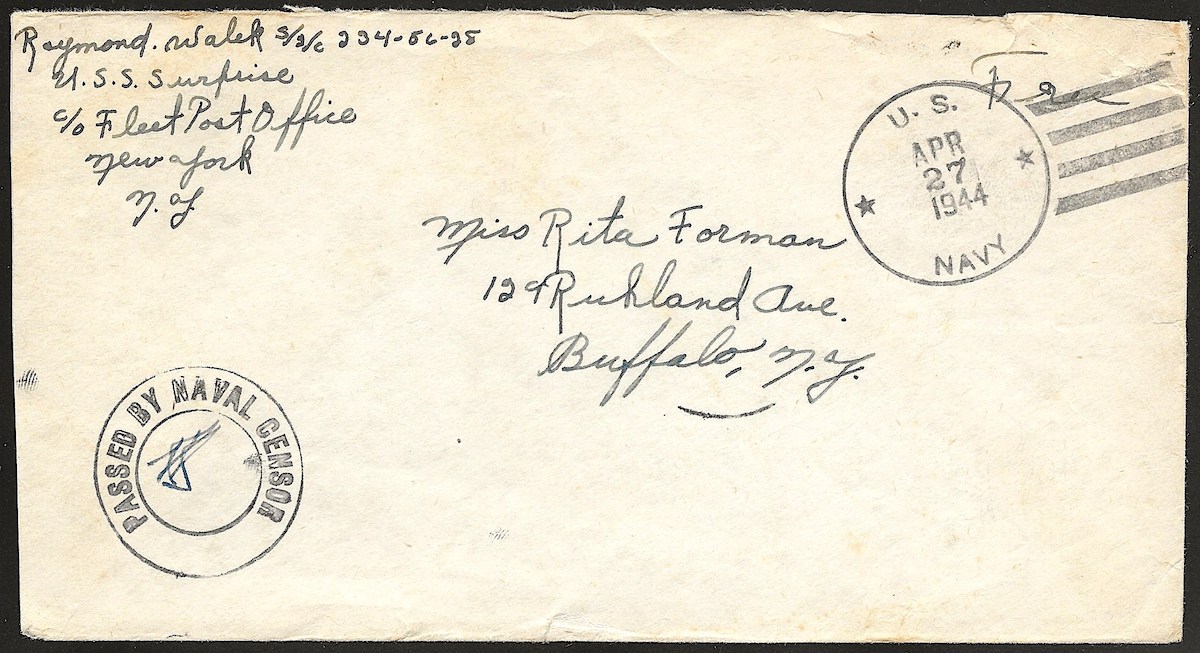 Raymond. Walek S/2/c 234-56-25
U.S.S. Surprise
c/o Fleet Post Office
New York
N.Y.
Free
U. S.
APR
27
1944
NAVY
Miss Rita Forman
129 Ruhland Ave.
Buffalo, N.Y.
PASSED BY NAVAL CENSOR